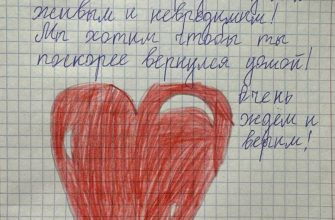 живым и невредимым!
Мы хотим чтобы ты
поскорее вернулся домой!
очень
ждём и
верим!